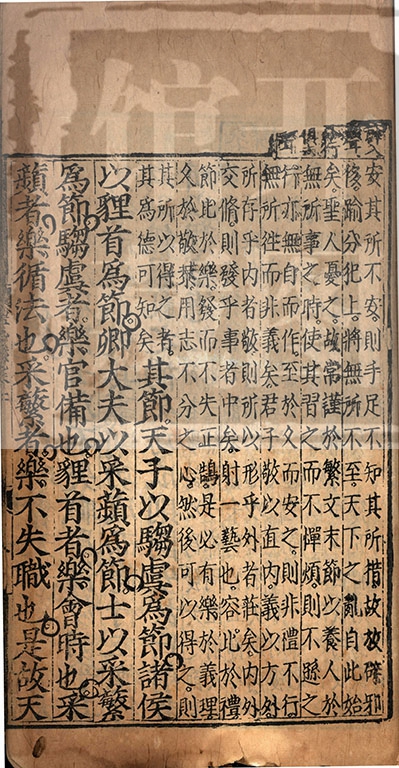 安其所不安則手足不知其所措故放辟邪
侈踰分犯上將無所不至天下之亂自此始
矣聖人憂之故常謹於繁文末節以養人於
無所事之時使其習之而不憚煩則不遜之
行亦無自而作至於久而安之則非禮不行
無所徃而非義矣君子敬以直内義以方外
所存乎内者敬則所以形乎外者莊矣内外
交脩則發乎事者中矣射一藝也容比於禮
節比於樂發而不失正鵠是必有樂於義理
久於敬恭用志不分之心然後可以得之則
其所以得之者
其爲德可知矣
其節天子以騶虞爲節諸侯
以貍首爲節卿大夫以采蘋爲節士以采蘩
爲節騶虞者樂官備也貍首者樂會時也采
蘋者樂循法也采蘩者樂不失職也是故天